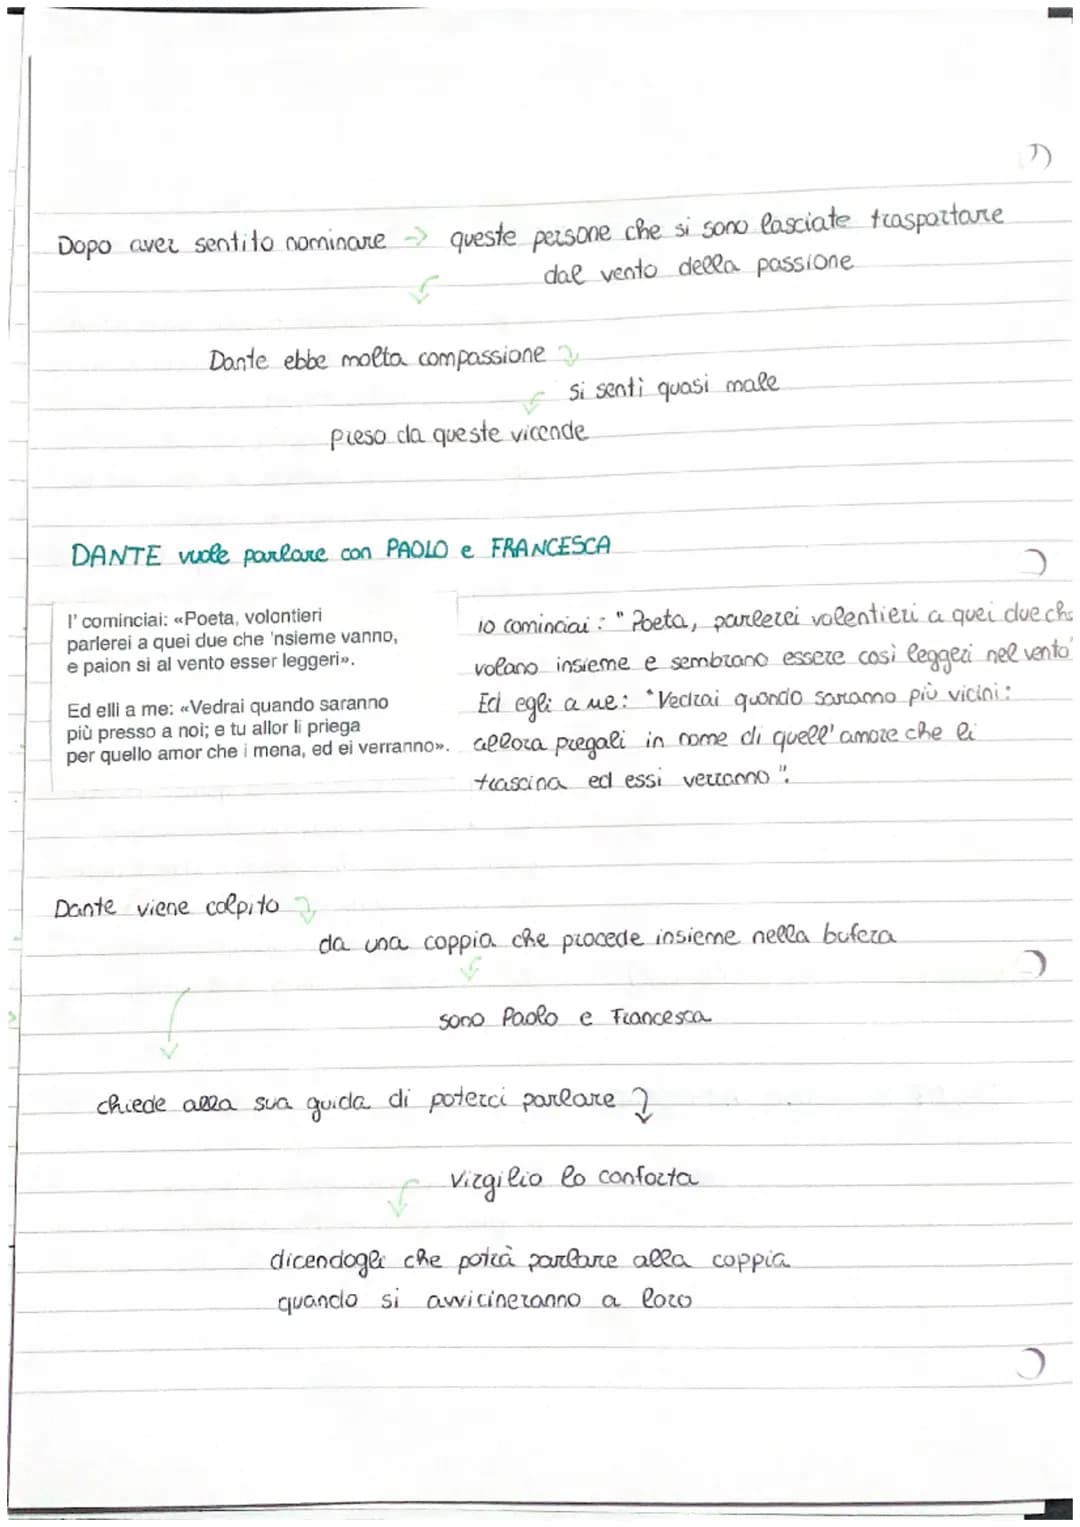 Dopo aver sentito nominare → queste persone che si sono lasciate trasportare
dal vento della passione
Dante ebbe molta compassione
si sentì quasi male
preso da queste vicende
DANTE vuole parlare con PAOLO e FRANCESCA
I' cominciai: «Poeta, volontieri
parlerei a quei due che 'nsieme vanno,
e paion sì al vento esser leggeri».
Ed elli a me: «Vedrai quando saranno
più presso a noi; e tu allor li priega
per quello amor che i mena, ed ei verranno».
Io cominciai: "Poeta, parlerei volentieri a quei due che
volano insieme e sembrano essere così leggeri nel vento"
Ed egli a me: "Vedrai quando saranno più vicini:
allora pregali in nome di quell'amore che li
trascina ed essi verranno".
Dante viene colpito
da una coppia che procede insieme nella bufera
sono Paolo e Francesca
chiede alla sua guida di poterci parlare
Virgilio lo conforta
dicendogli che potrà parlare alla coppia
quando si avvicineranno a loro